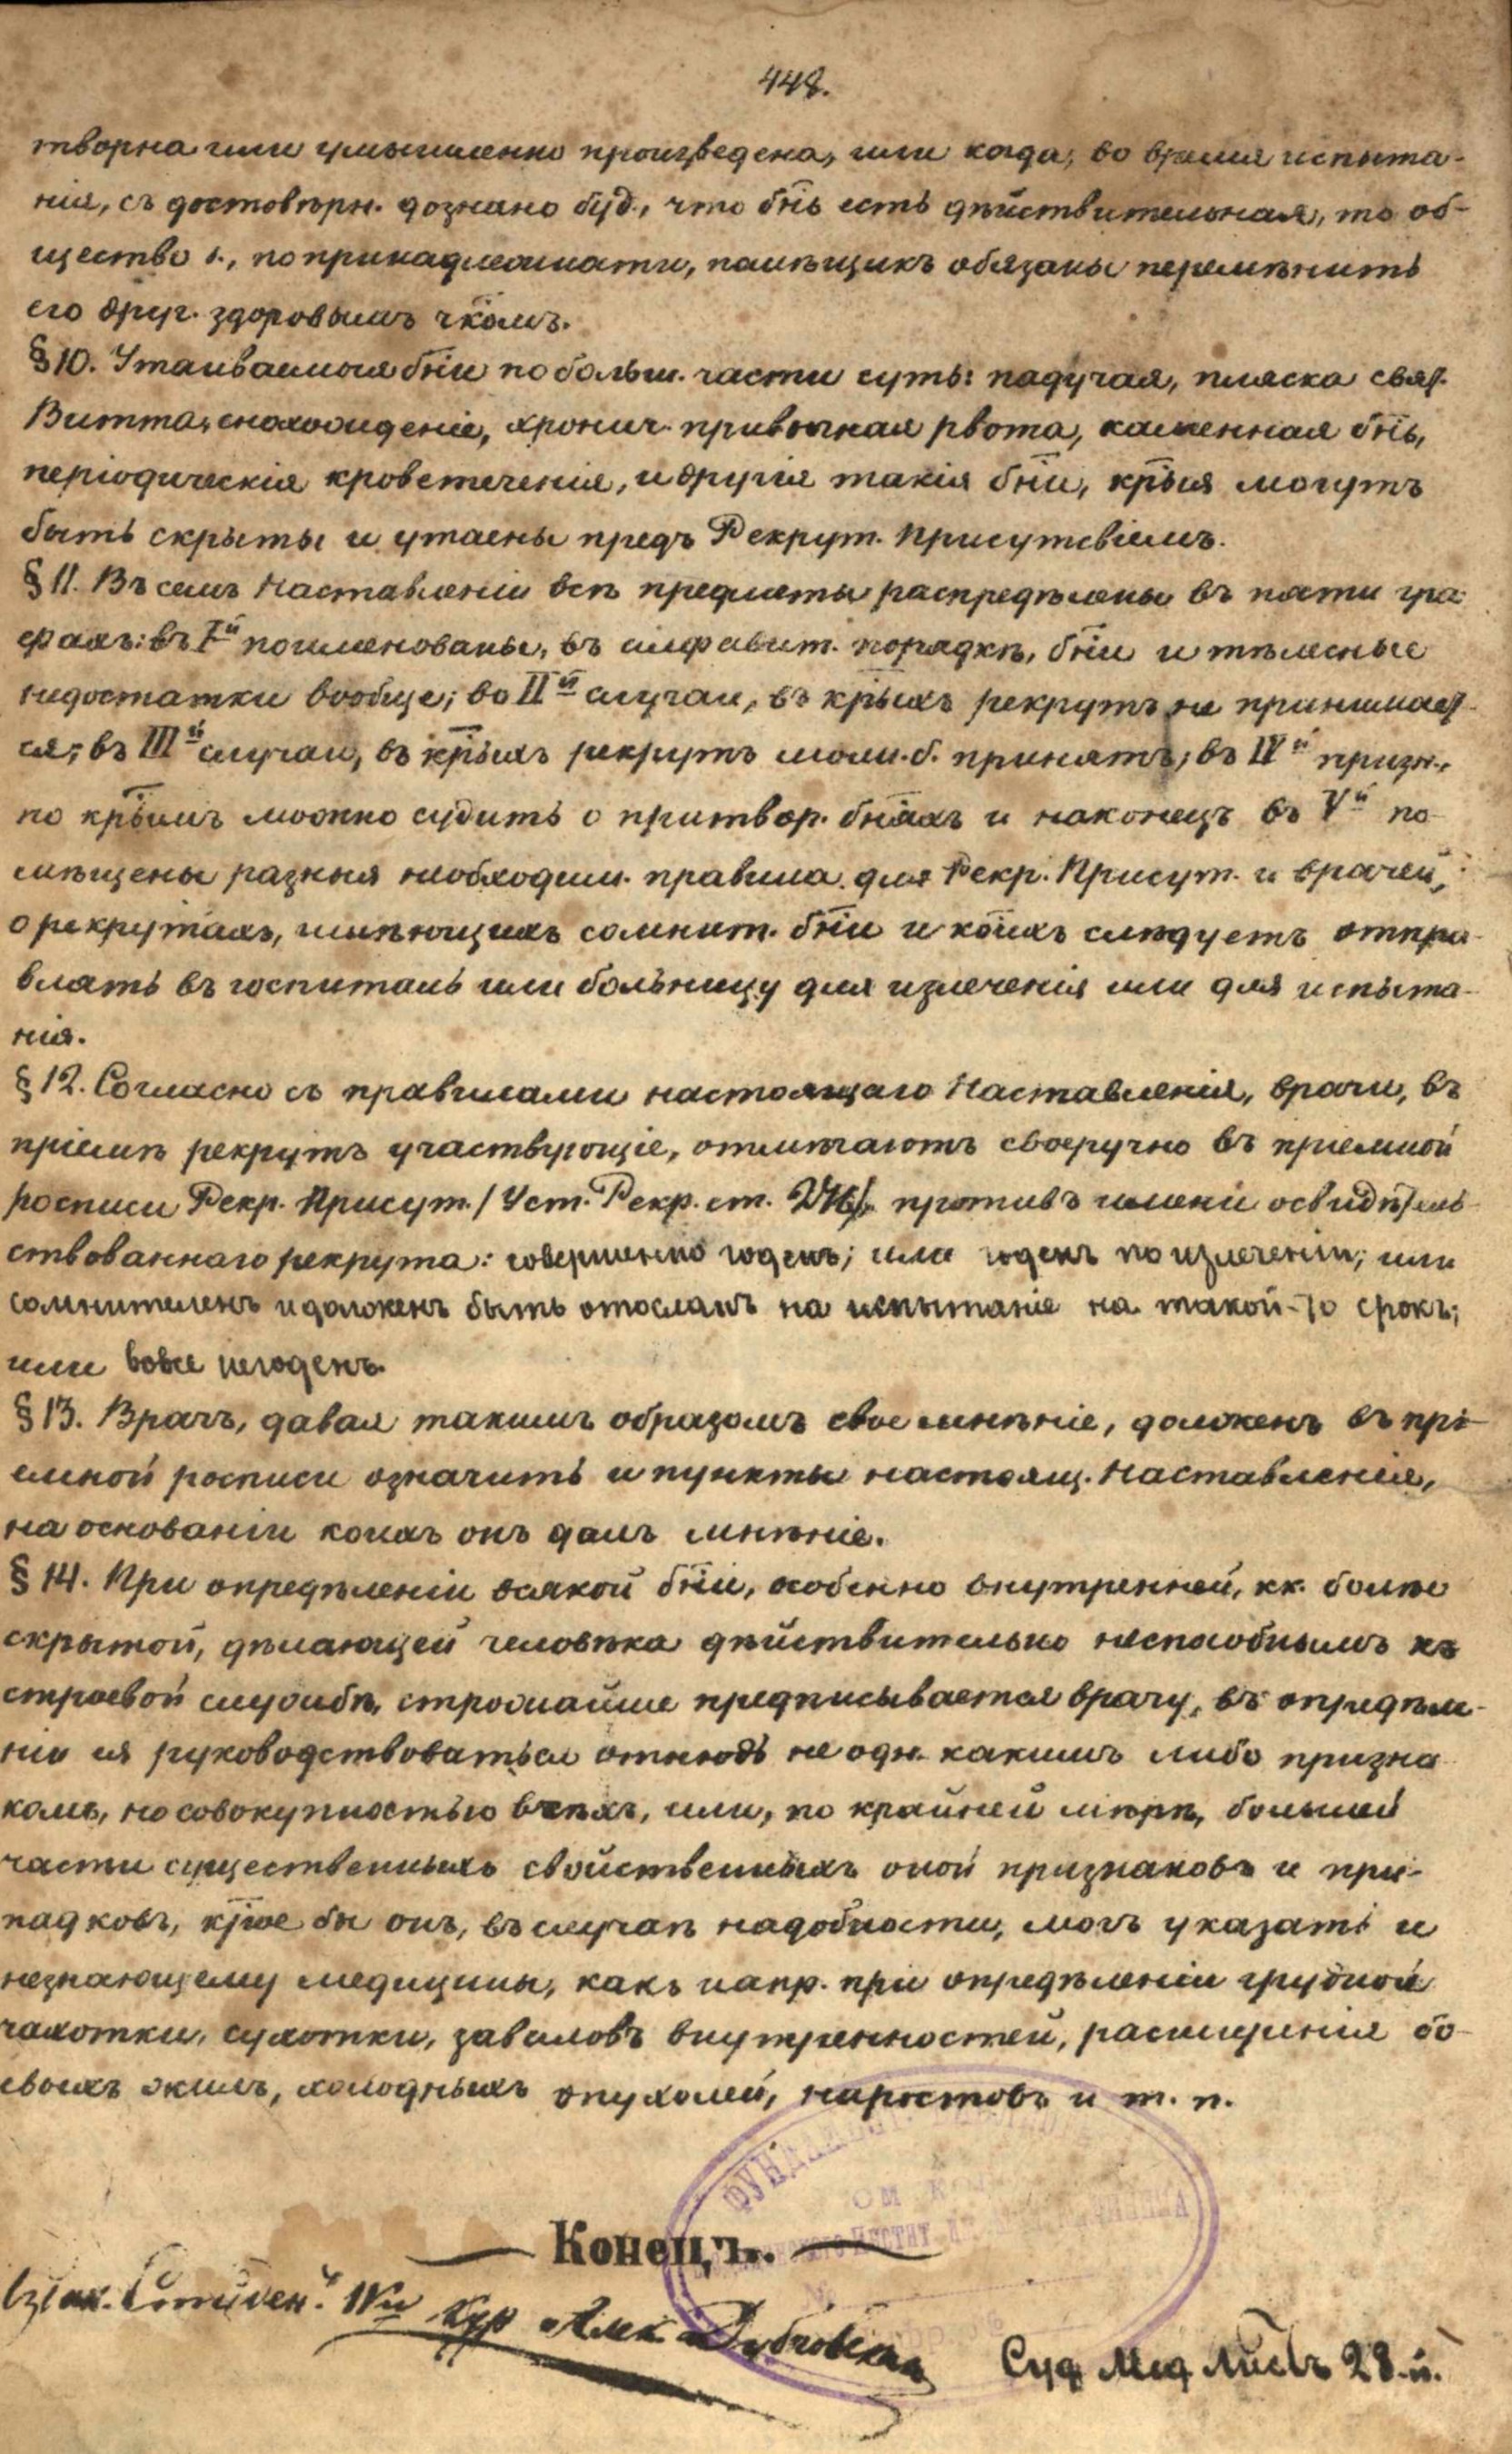 448.
творна или умышленно произведена, или когда, во время испыта-
нія, съ достовѣрн. дознано буд., что бнь есть дѣйствительная, то об-
щество и., по принадлежности, помѣщикъ обязаны перемѣнить
его друг. здоровымъ чкомъ.
§ 10. Утаиваемыя бни по больш. части суть: падучая, пляска свят.
Витта, снохожденіе, хронич. привычная рвота, каменная бнь,
періодическія кровотеченія, и другія такія бни, крыя могутъ
быть скрыты и утаены предъ Рекрут. Присутсвіемъ.
§ 11. Въ семъ Наставленіи всѣ предметы распредѣлены въ пяти гра-
фахъ: въ Iй поименованы, въ алфавит. порядкѣ, бни и тѣлесные
недостатки вообще; во IIй случаи, въ крыхъ рекрутъ не принимает-
ся; въ IIIй случаи, въ крыхъ рекрутъ мож. б. принятъ; въ IVй призн.,
по крымъ можно судить о притвор. бняхъ и наконецъ въ Vй по-
мѣщены разныя необходим. правила для Рекр. Присут. и врачей,
о рекрутахъ, имѣющихъ сомнит. бни и коихъ слѣдуетъ отпра-
влять въ госпиталь или больницу для излеченія или для испыта-
нія.
§ 12. Согласно съ правилами настоящаго Наставленія, врачи, въ
пріемѣ рекрутъ участвующіе, отмѣчаютъ своеручно въ пріемной
росписи Рекр. Присут. / Уст. Рекр. ст. / противъ имени освидѣтель-
ствованнаго рекрута: совершенно годенъ; или годенъ по излеченіи; или
сомнителенъ и долженъ быть отосланъ на испытаніе на такой-то срокъ;
или вовсе негоденъ.
§ 13. Врачъ, давая такимъ образомъ свое мнѣніе, долженъ въ прі-
емной росписи означить и пункты настоящ. Наставленія,
на основаніи коихъ онъ далъ мнѣніе.
§ 14. При опредѣленіи всякой бни, особенно внутренней, кк. болѣе
скрытой, дѣлающей человѣка дѣйствительно неспособнымъ къ
строевой службѣ, строжайше предписывается врачу, въ опредѣле-
ніи ея руководствоваться отнюдь не одн. какимъ либо призна-
комъ, но совокупностью всѣхъ, или, по крайней мѣрѣ, большей
части существенныхъ свойственныхъ оной признаковъ и при-
падковъ, крые бы онъ, въ случаѣ надобности, могъ указать и
незнающему медицины, какъ напр. при опредѣленіи грудной
чахотки, сухотки, заваловъ внутренностей, расширенія бо-
евыхъ жилъ, холодныхъ опухолей, наростовъ и т. п.
Конецъ.
IVй Кур Алек
Суд Мед Листъ 28-й.